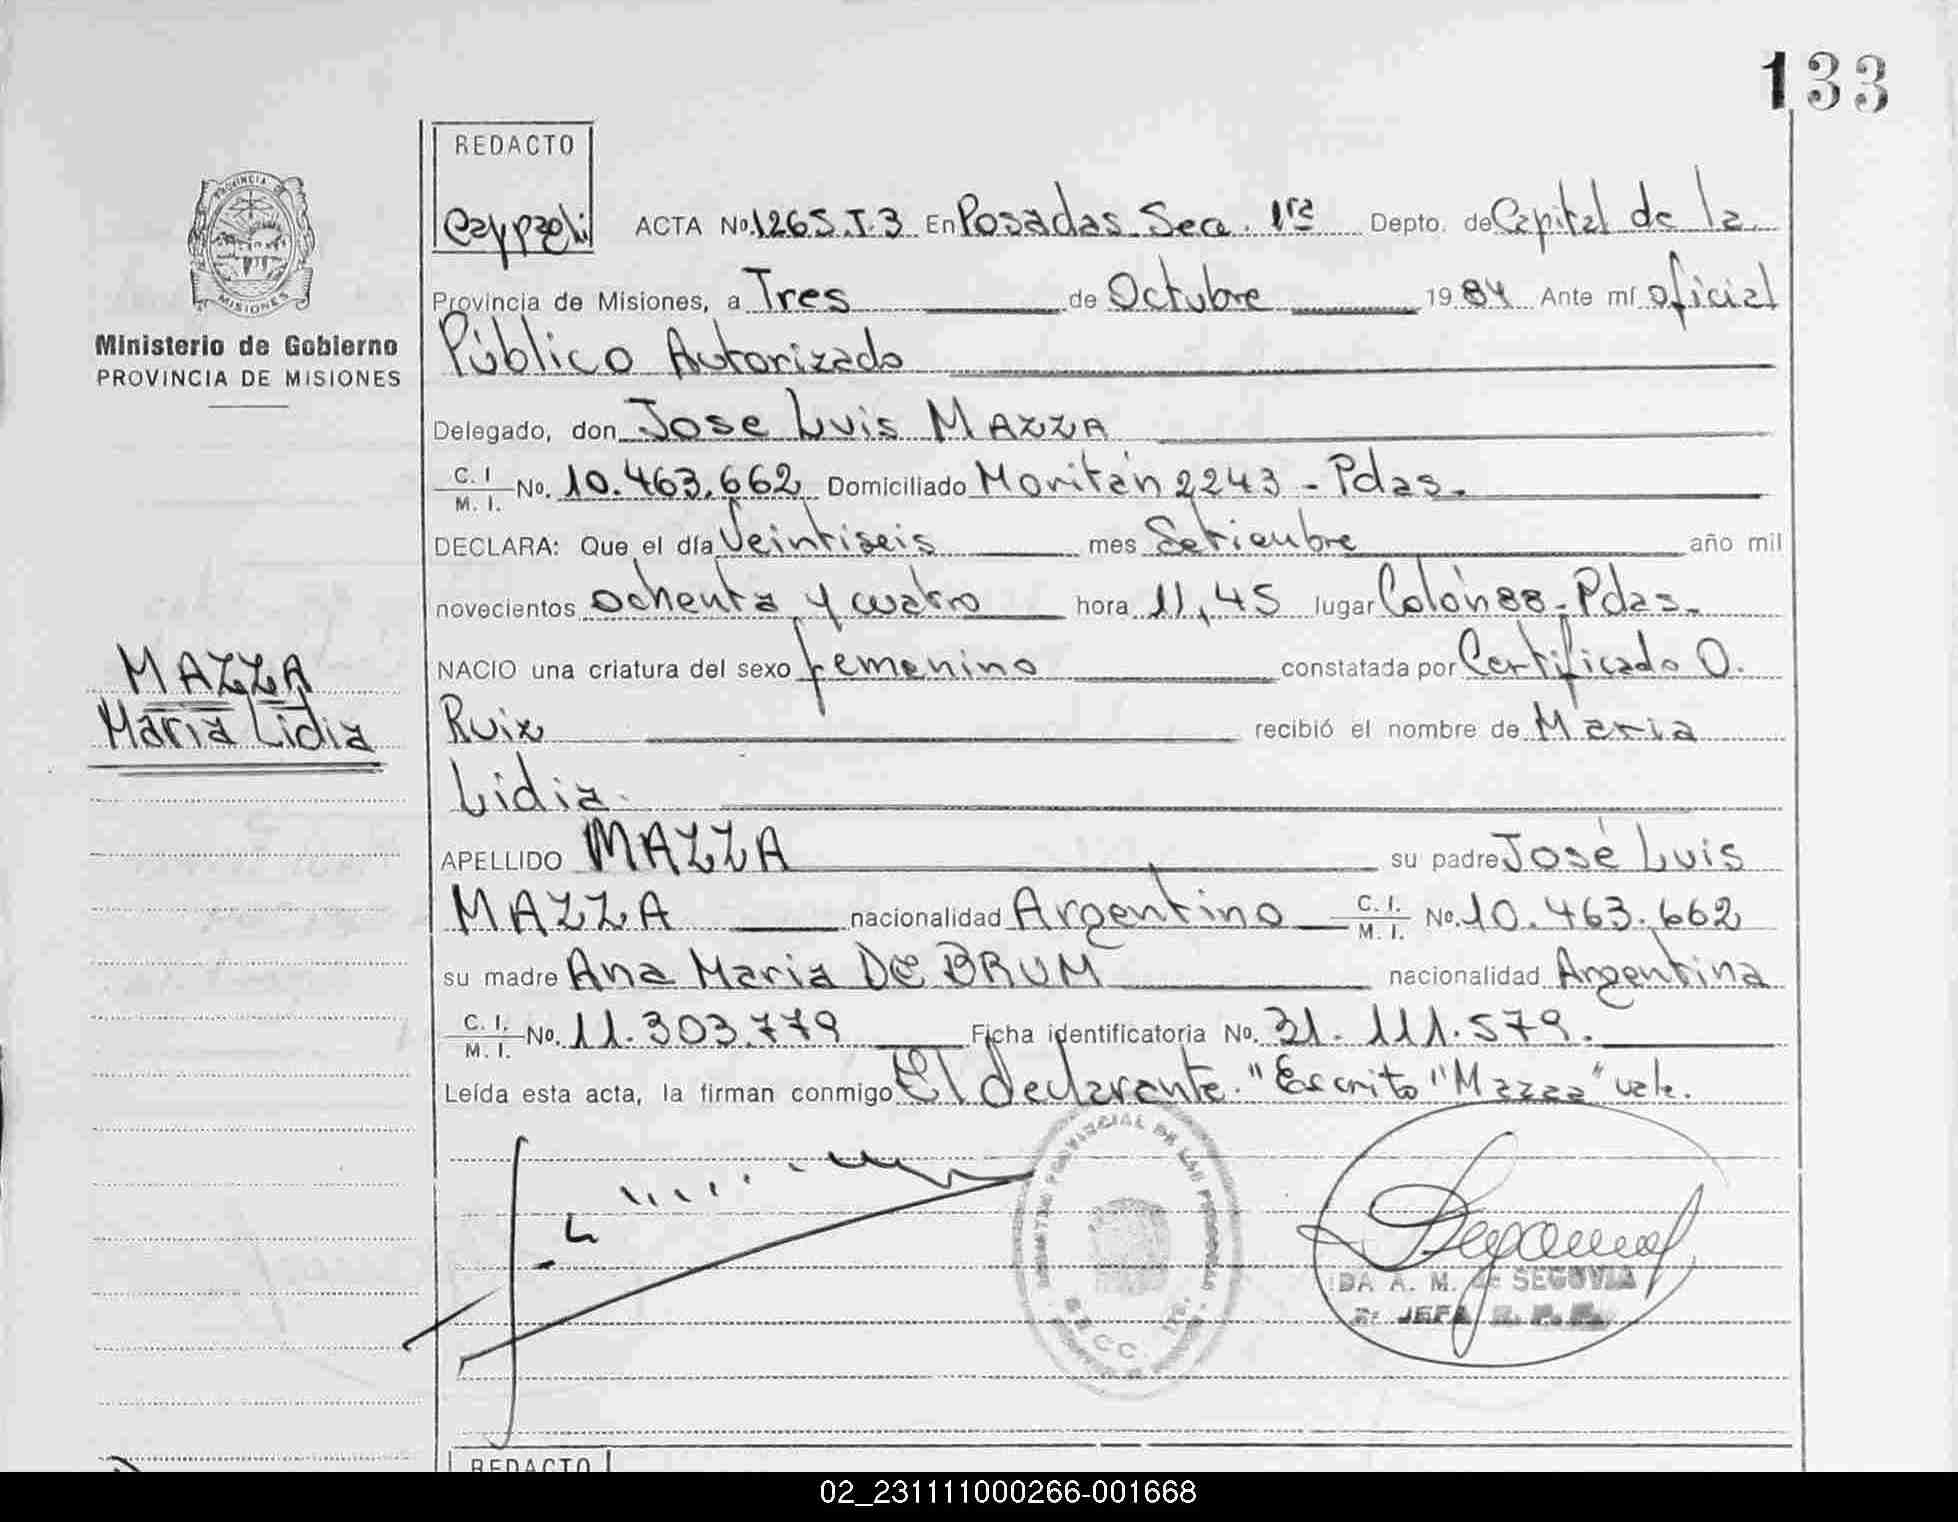 133
REDACTO
ACTA No. 1265.T.3 En Posadas Secc. 1ra Depto. de Capital de la
PROVINCIA DE
MISIONES
Provincia de Misiones, a Tres de Octubre 1984 Ante mí oficial
Ministerio de Gobierno
PROVINCIA DE MISIONES
Público Autorizado
Delegado, don Jose Luis MAZZA
C. I. / M. I. No. 10.463.662 Domiciliado Moritán 2243 - Pdas.
DECLARA: Que el día Veintiseis mes Setiembre año mil
novecientos ochenta y cuatro hora 11,45 lugar Colón 88 - Pdas.
NACIO una criatura del sexo femenino constatada por Certificado O.
MAZZA
Maria Lidia
Ruiz recibió el nombre de Maria
Lidia.
APELLIDO MAZZA su padre José Luis
MAZZA nacionalidad Argentino C. I. / M. I. No. 10.463.662
su madre Ana Maria DE BRUM nacionalidad Argentina
C. I. / M. I. No. 11.303.779 Ficha identificatoria No. 31.111.579.
Leída esta acta, la firman conmigo El declarante. "Escrito "Mazza" vale.
PROVINCIAL DE LAS PERSONAS
SECC. 1ra.
DA A. M. de SEGOVIA
JEFA R. P. P.
REDACTO
02_231111000266-001668